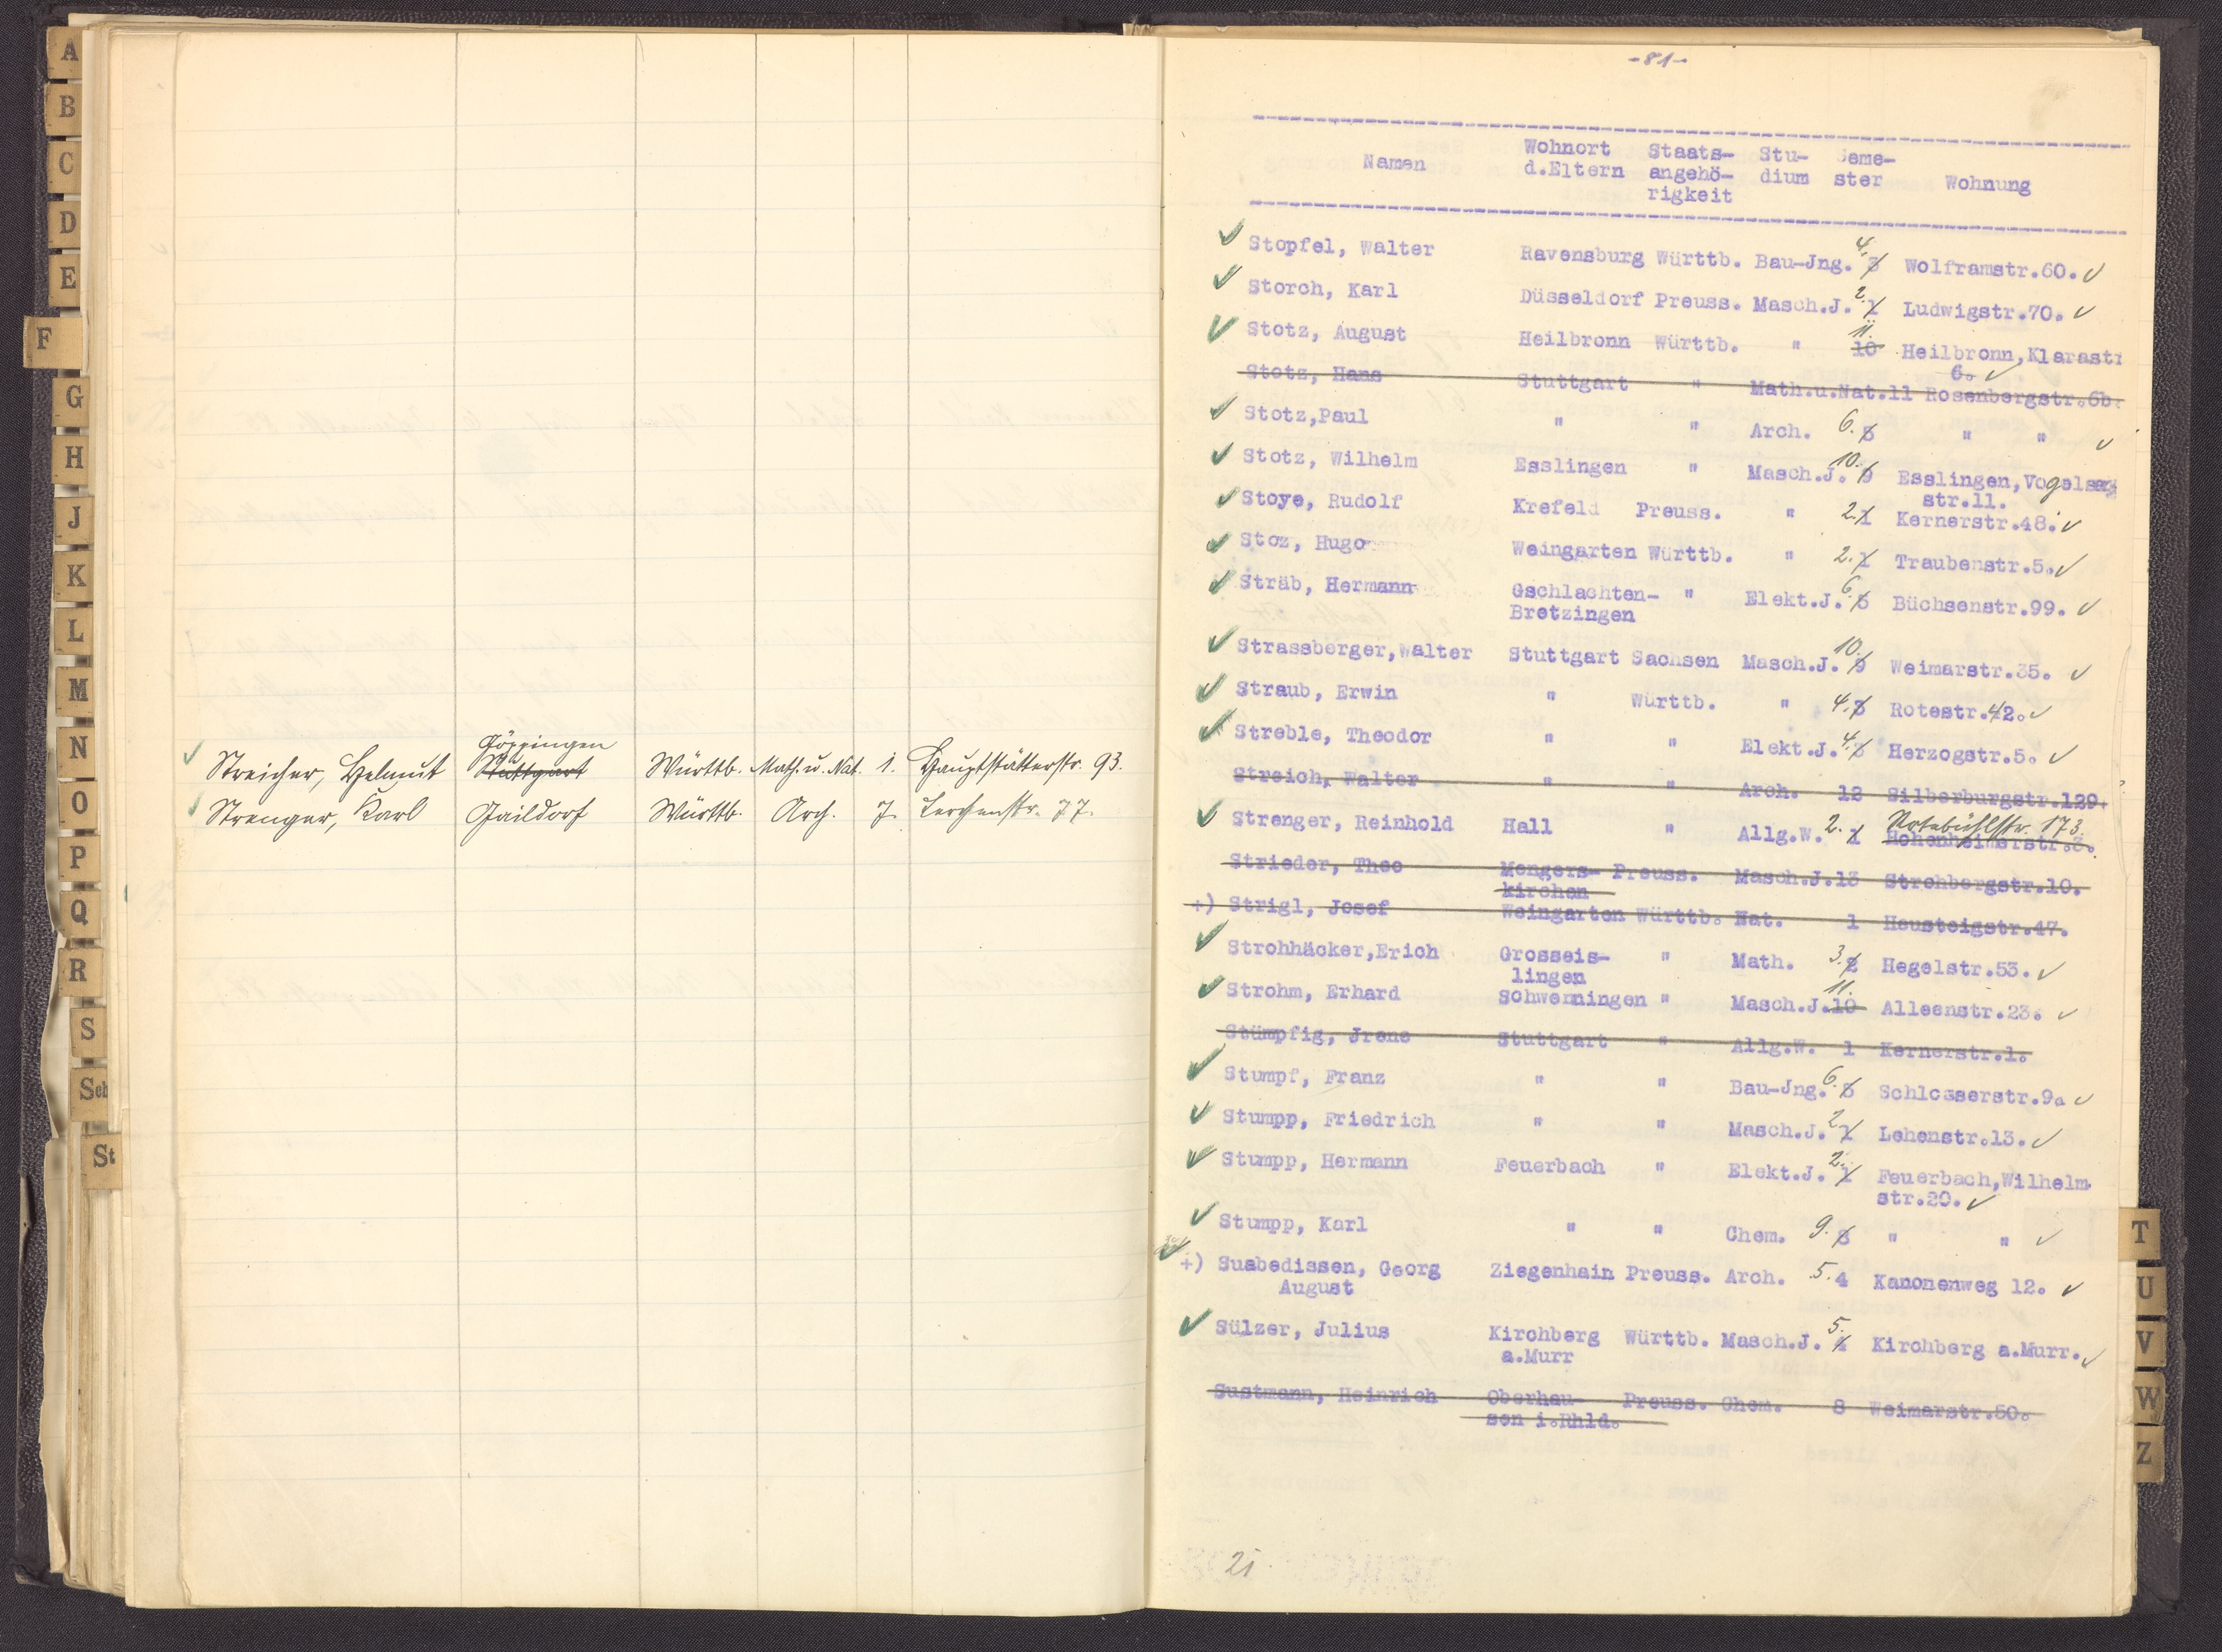 A
B
C
D
E
F
G
H
J
K
L
M
N
O
P
Q
R
S
Sch
St
Göppingen
Streicher, Helmut Stuttgart Württb. Math. u. Nat. 1. Hauptstätterstr. 93.
Strenger, Karl Gaildorf Württb. Arch. 7. Lerchenstr. 77.
-81-
Namen Wohnort d.Eltern Staats-angehö-rigkeit Stu-dium Seme-ster Wohnung
Stopfel, Walter Ravensburg Württb. Bau-Jng. 4. 3 Wolframstr.60.
Storch, Karl Düsseldorf Preuss. Masch.J. 2. 1 Ludwigstr.70.
Stotz, August Heilbronn Württb. " 11. 10 Heilbronn,Klarastr
6.
Stotz, Hans Stuttgart " Math.u.Nat.11 Rosenbergstr.6b.
Stotz,Paul " " Arch. 6. 5 " "
Stotz, Wilhelm Esslingen " Masch.J. 10. 9 Esslingen,Vogelsang
str.11.
Stoye, Rudolf Krefeld Preuss. " 2. 1 Kernerstr.48.
Stoz, Hugo Weingarten Württb. " 2. 1 Traubenstr.5.
Sträb, Hermann Gschlachten- " Elekt.J. 6. 5 Büchsenstr.99.
Bretzingen
Strassberger,Walter Stuttgart Sachsen Masch.J. 10. 9 Weimarstr.35.
Straub, Erwin " Württb. " 4. 3 Rotestr.42.
Streble, Theodor " " Elekt.J. 4. 3 Herzogstr.5.
Streich, Walter " " Arch. 12 Silberburgstr.129.
Rotebühlstr. 173.
Strenger, Reinhold Hall " Allg.W. 2. 1 Hohenheimerstr.3.
Strieder, Theo Mengers- Preuss. Masch.J.13 Strohbergstr.10.
kirchen
+) Strigl, Josef Weingarten Württb. Nat. 1 Heusteigstr.47.
Strohhäcker,Erich Grosseis- " Math. 3. 2 Hegelstr.53.
lingen
Strohm, Erhard Schwenningen " Masch.J. 11. 10 Alleenstr.23.
Stümpfig, Jrene Stuttgart " Allg.W. 1 Kernerstr.1.
Stumpf, Franz " " Bau-Jng. 6. 5 Schlosserstr.9.
Stumpp, Friedrich " " Masch.J. 2. 1 Lehenstr.13.
Stumpp, Hermann Feuerbach " Elekt.J. 2. 1 Feuerbach,Wilhelm
str.20.
Stumpp, Karl " " Chem. 9. 8 " "
+) Suabedissen, Georg Ziegenhain Preuss. Arch. 5. 4 Kanonenweg 12.
August
Sülzer, Julius Kirchberg Württb. Masch.J. 5. 4 Kirchberg a.Murr.
a.Murr
Sustmann, Heinrich Oberhau- Preuss. Chem. 8 Weimarstr.50.
sen i.Rhld.
21
T
U
V
W
Z